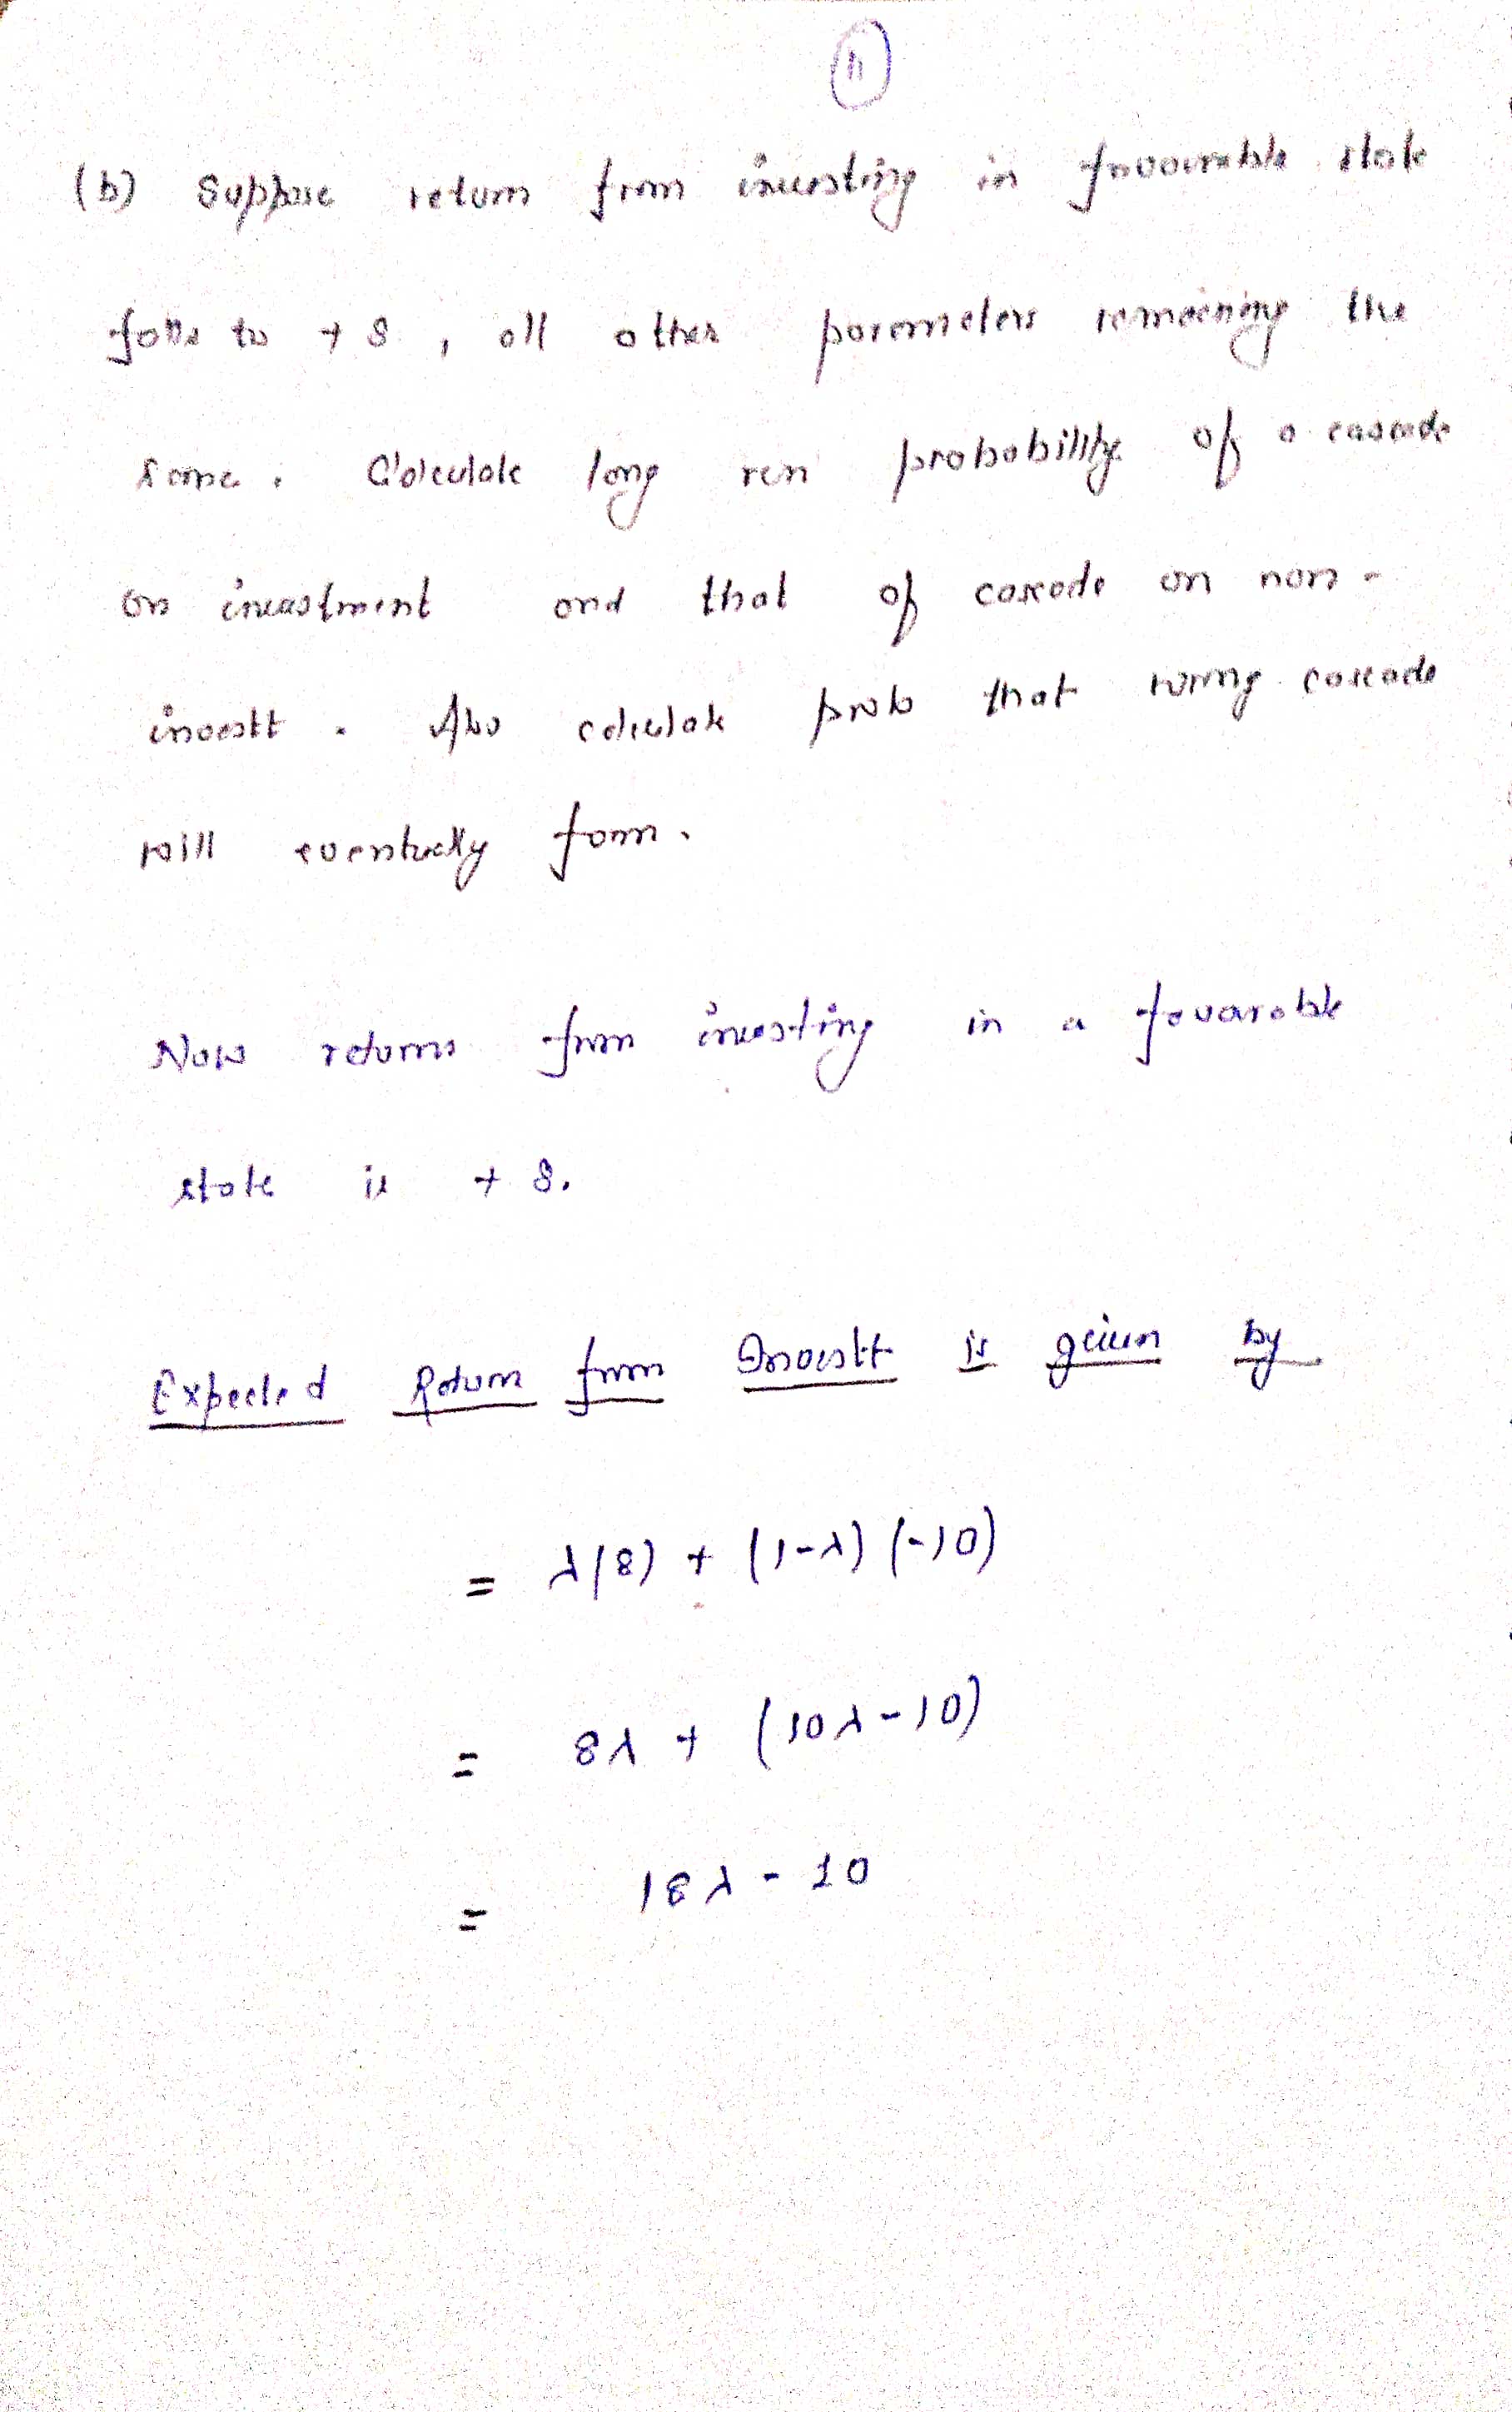 11
(b) Suppose return from investing in favourable state
falls to + 8 , all other parameters remaining the
same . Calculate long run probability of a cascade
on investment and that of cascade on non -
investt . Also calculate prob that wrong cascade
will eventually form .
Now returns from investing in a favourable
state is + 8.
Expected Return from Investt is given by
= λ(8) + (1-λ) (-10)
= 8λ + (10λ-10)
= 18λ - 10